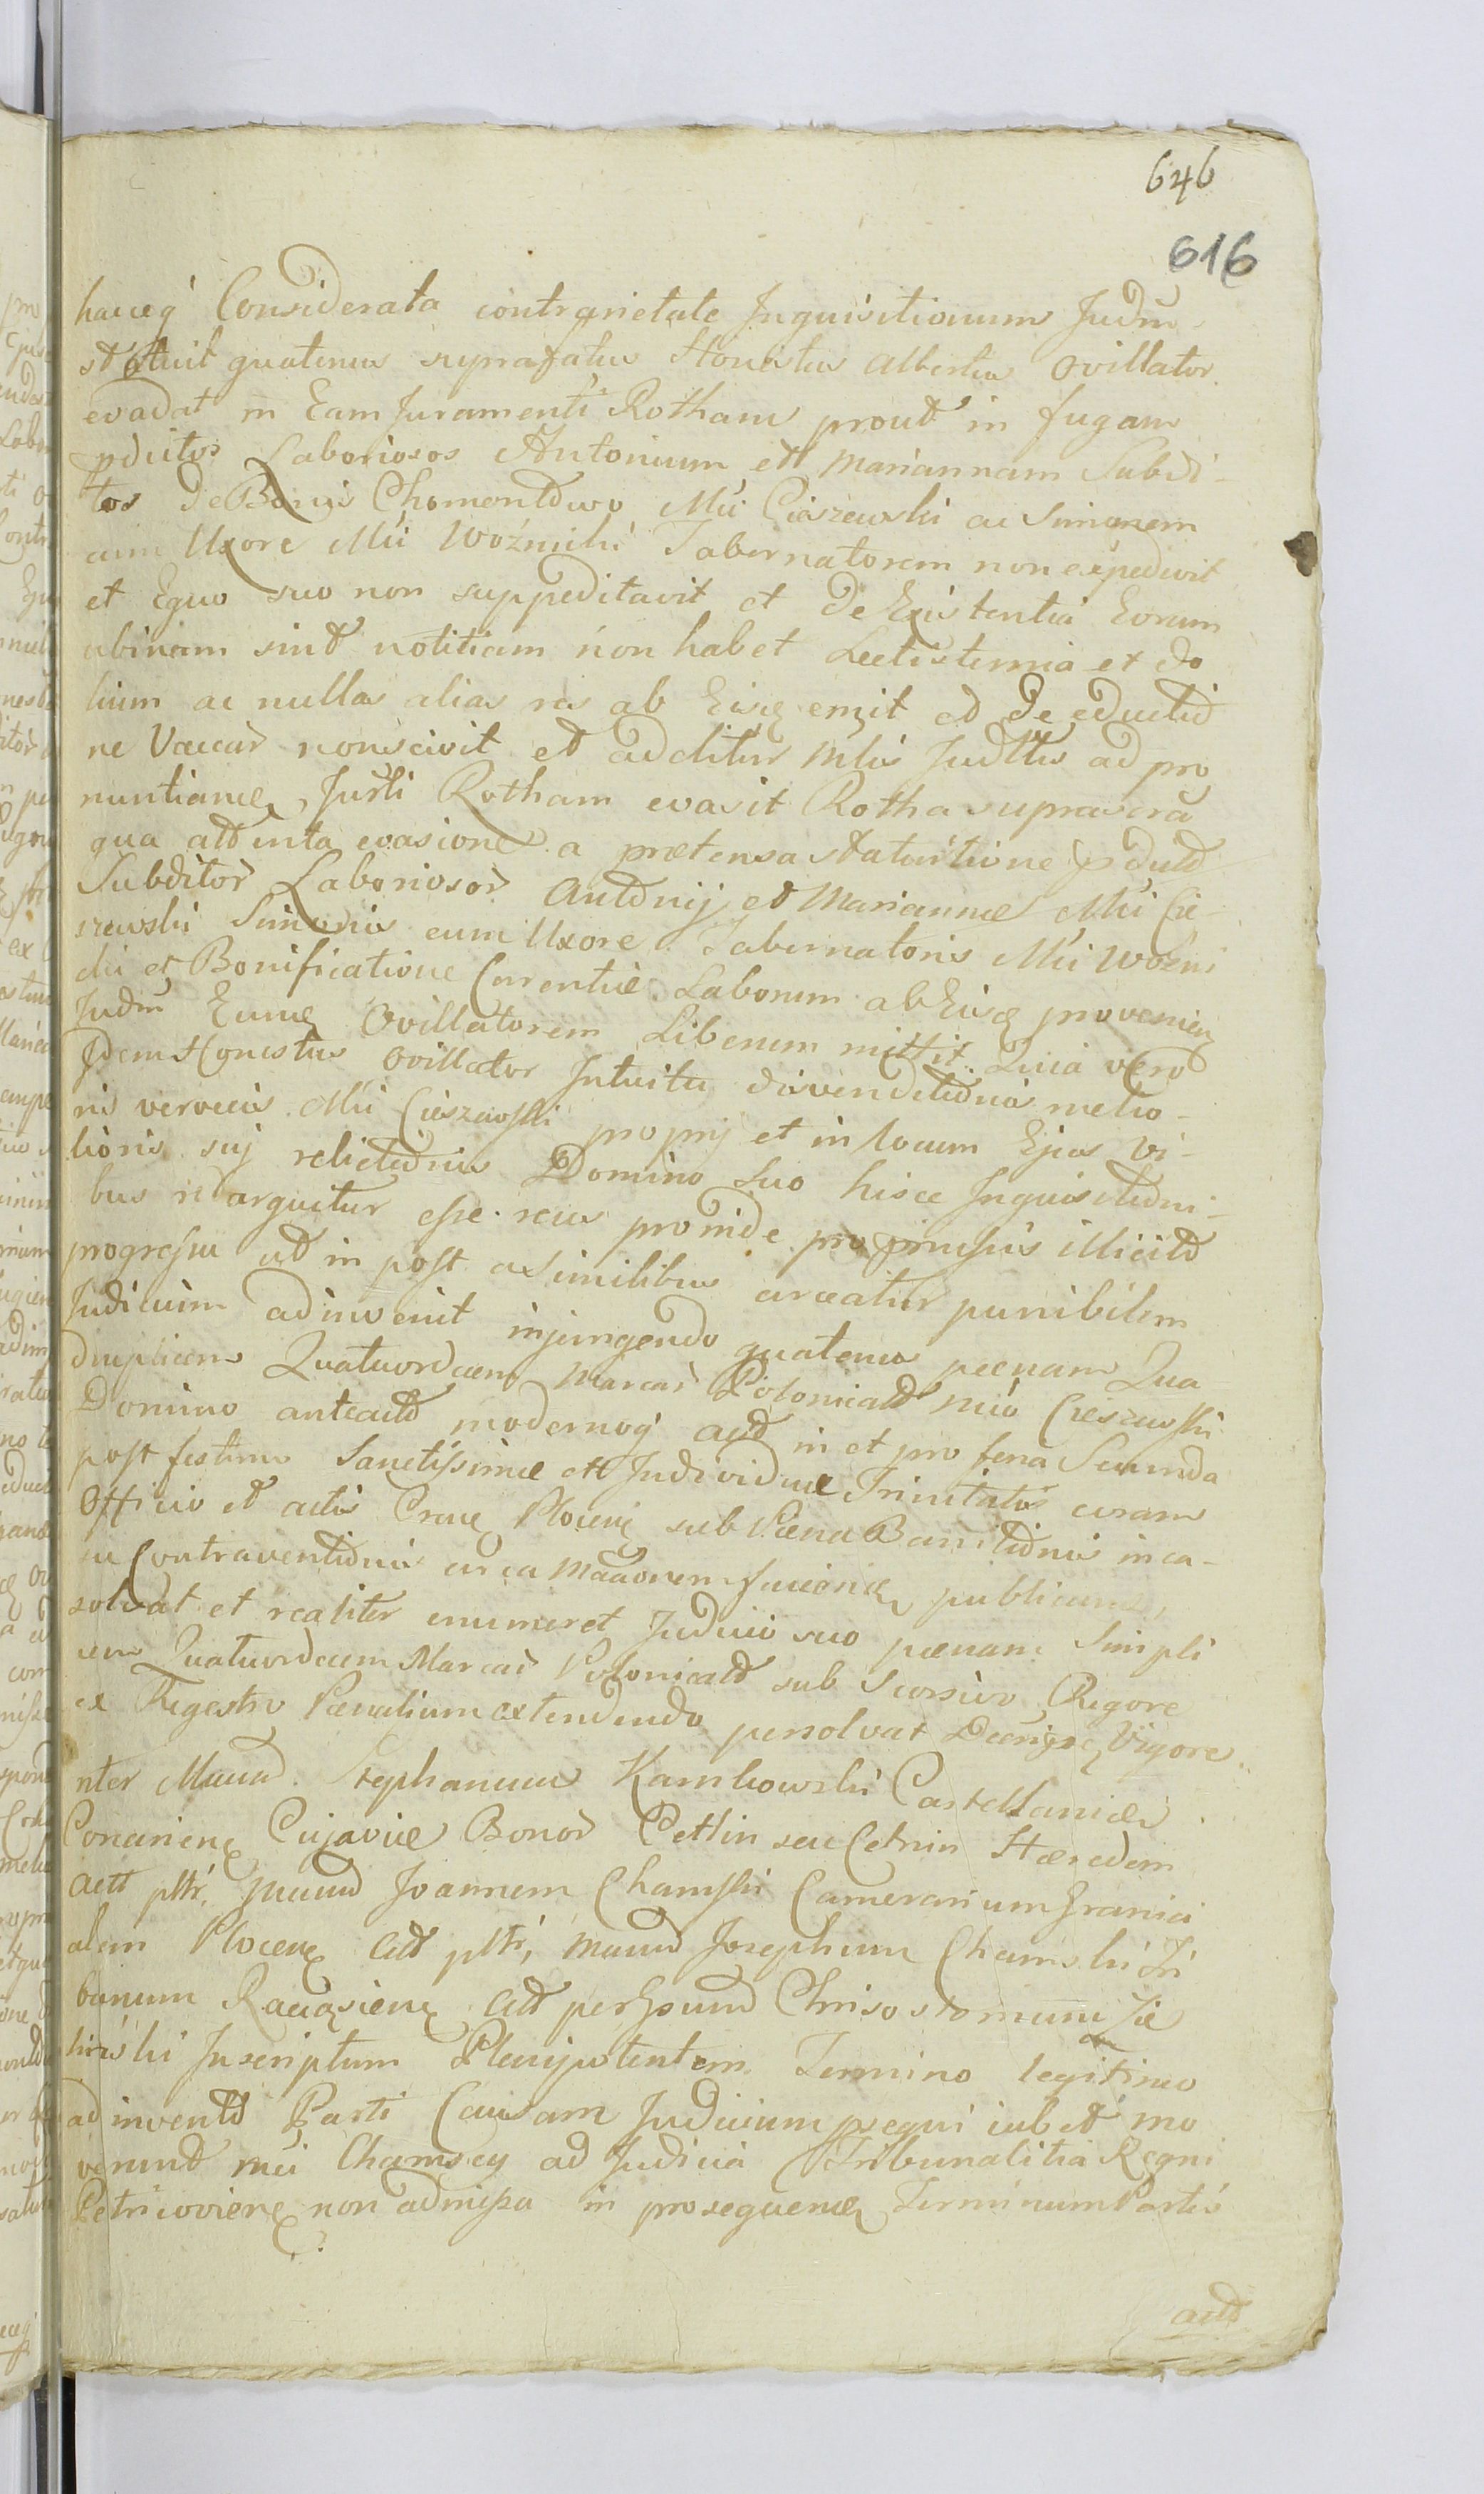 646
616
hacceq́ Considerata contrarietate Inquisitionum Judm
statuit quatenus suprafatus Honestus Albertus Ovillator
evadat in Eam Juramenti Rotham prout in fugam
pdictos Laboriosos Antonium ett Mariannam Subdi-
tos de Bonis Chomentowo Mci Cieszewski ac Simonem
cum Uxore Mci Woźnicki Tabernatorem non expedivit
et Equo suo non suppeditavit et de Existentia Eorum
ubinam sint notitiam non habet Lectisternia et do
lium ac nullas alias res ab Eisq emit et de eductio
ne Vaccar nonscivit et additur Mlis Judttus ad pro
nuntianq Jurti Rotham evasit Rotha suprascra
qua attenta evasione a praetensa statuitione pdict
Subditor Laboriosor Antonij et Mariannae Mci Cie-
szewski Simonis cum Uxore Tabernatoris Mci Wozni
cki et Bonificatione Carentiae Laborum ab Eisq provenien
Judm Eunq Ovillatorem Liberum mittit. Quia vero
Idem Honestus Ovillator Intuitu divenditionis melio-
ris vervecis Mci Cieszewski proprij et in locum Ejus vi-
lioris suj relictionis Domino Suo hisce Inquisitioni-
bus redarguitur esse reus proinde pro praemissis illicito
progressu ut in post a Similibus arceatur punibilem
Judicium adinvenit injungendo quatenus paenam Qua
druplicem Quatuordecem Marcar Polonicalt Mco Cieszewski
Domino anteact modernoq́ act in et pro feria Secunda
post festum Sanctissimae ett Individuae Trinitatis coram
Officio et actis Crae Plocen sub Paena Bannitionis in ca-
su Contraventionis circa Maaonem faciend publicum
solvat et realiter enumeret Judicio suo paenam Simpli
cem Quatuordecem Marcar Polonicalt sub Scorsivo Rigore
ex Regestro Paenalium extendendo persolvat Decreti Vigore
nter Mcum Stephanum Kamkowski Castellanidem
Conarien Cujaviae Bonor Cettin seu Cetnin Haeredem
actt pltr, Mcum Joannem Chamski Camerarium Grania
alem Plocen Citt pltr, Mcum Josephum Chamski Tri
bunum Raciązien Citt per Gsum Chrisostomum Zie
liński Inscriptum Plenipotentem Termino legitimo
ad invento Parti Causam Judicium psequi iubet mo
verunt mci Chamscy ad Judicia Tribunalitia Regni
Petricovien non admissa in prosequenq Terminum Partis
act